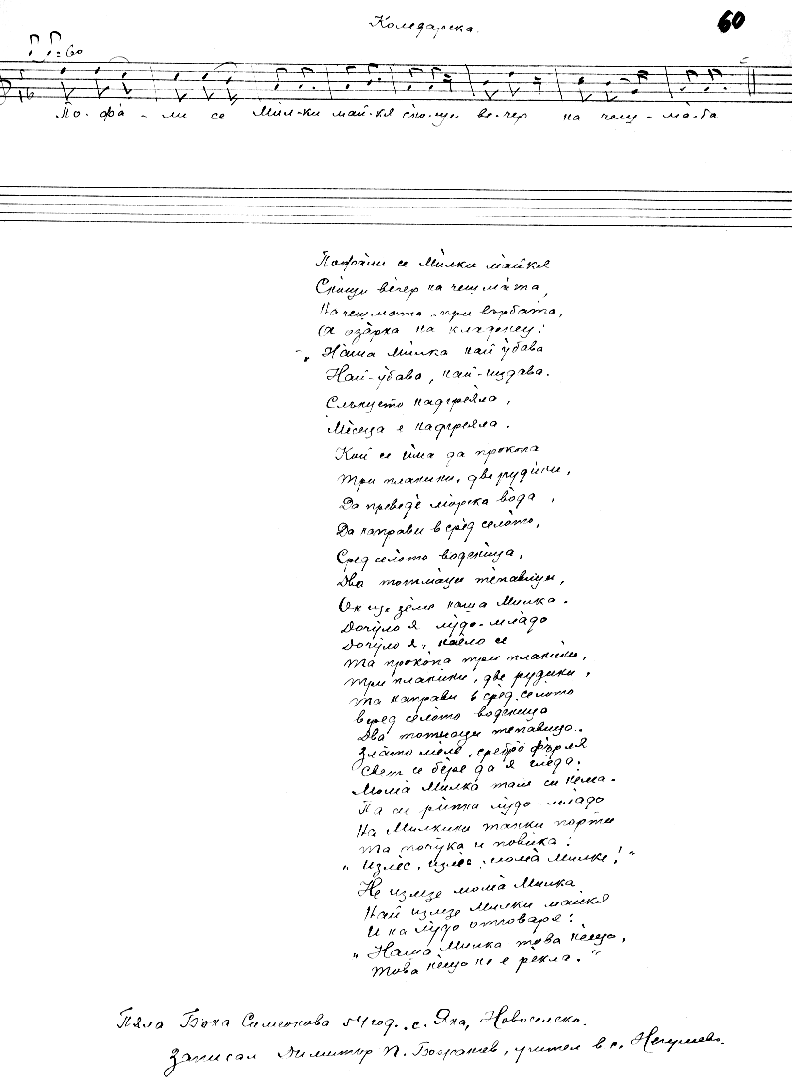 Коледарска.
60
= 60
По - фа - ли се Мил-ки май-кя сно-щи ве-чер на чеш - ма-та
Пофали се Милки майкя
Снощи вечер на чешмата,
На чешмата при върбата,
На кладенец:
"Наша Милка най убава
Най-убава, най-издава.
Слънцето надгреяла,
Месеца е надгреяла.
Кой се има да прокопа
Три планини, две рудини,
Да преведе морска вода,
Да направи в сред селото,
Сред селото воденица,
Два тепавици,
Он ще земе наша Милка.
Дочуло я лудо-младо
Дочуло я, наело се
Та прокопа три планини,
Три планини, две рудини,
Та направи в сред селото
всред селото воденица
Два тепавици.
Злато меле, сребро фърля
Свет се бере да я гледа.
Мома Милка там си нема.
Па си рипна лудо младо
На Милкини порти
Та почука и повика:
"Излес, излес, мома Милке!"
Не излзе мома Милка
Най излзе Милки майкя
И на лудо отговаря:
"Наша Милка това нещо,
Това нещо не е рекла."
Пяла Бона Симеонова 54 год. с. Яна, Новоселско.
Записал Димитър П. учител в с. Негушево.